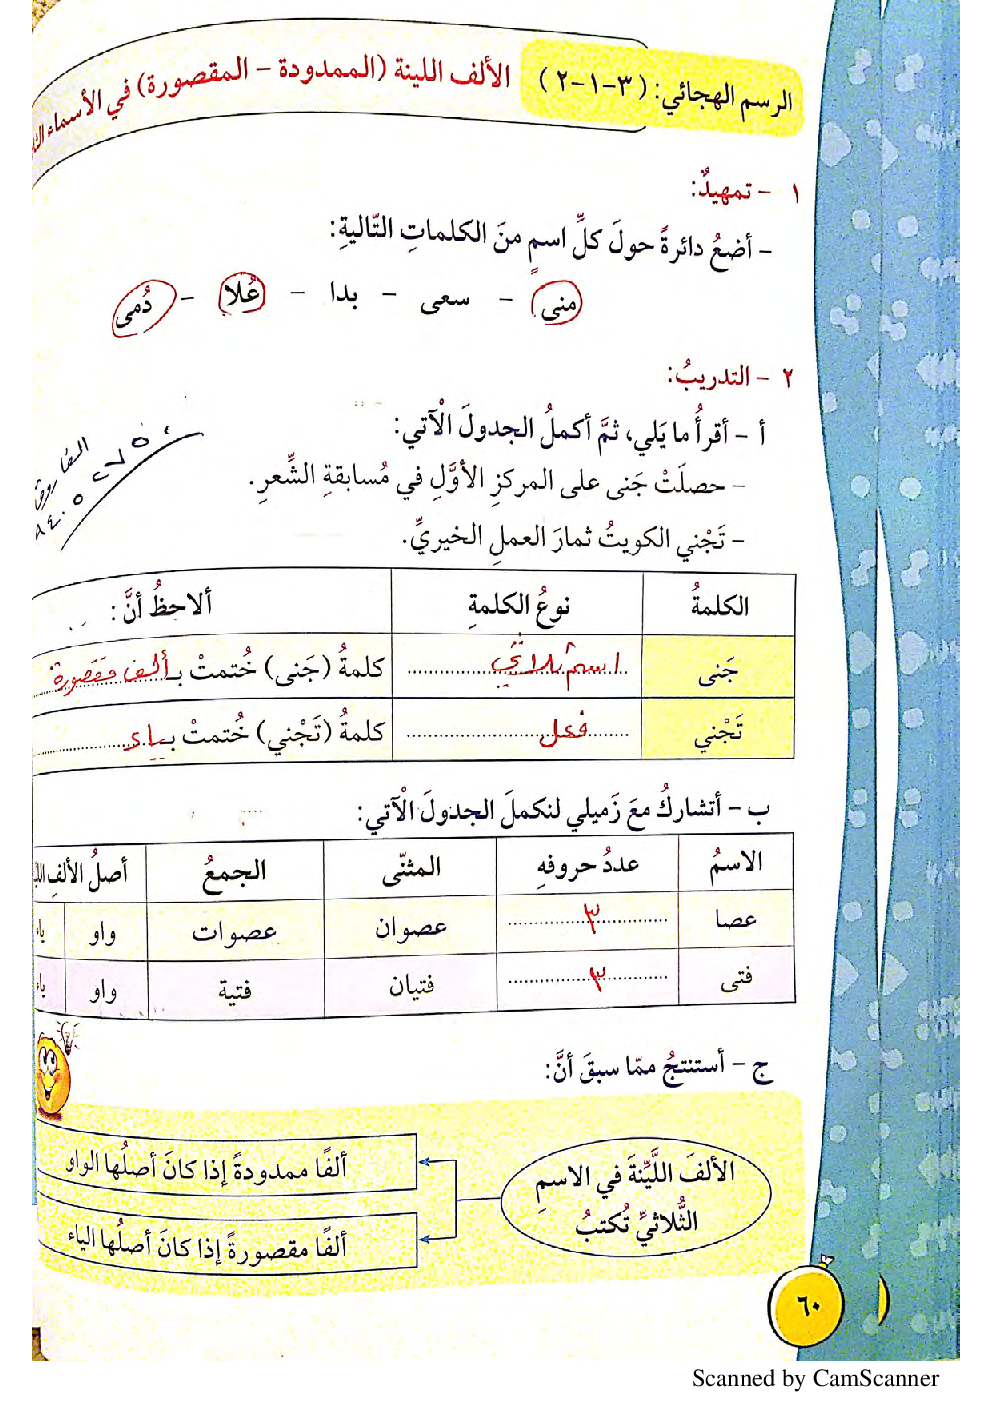 الرسم الهجائي: (٣-١-٢) الألف اللينة (الممدودة - المقصورة) في الأسماء
١ - تمهيدٌ:
- أضعُ دائرةً حولَ كلِّ اسمٍ منَ الكلماتِ التّاليةِ:
منى - سعى - بدا - عُلا - دُمى
٢ - التدريبُ:
أ - أقرأُ ما يَلي، ثمَّ أكملُ الجدولَ الْآتي:
- حصلَتْ جَنى على المركزِ الأوَّلِ في مُسابقةِ الشِّعرِ.
- تَجْني الكويتُ ثمارَ العملِ الخيريِّ.
الكلمةُ نوعُ الكلمةِ ألاحظُ أنَّ:
جَنى اسم ثلاثي كلمةُ (جَنى) خُتمتْ بـ ألف مقصورة
تَجْني فعل كلمةُ (تَجْني) خُتمتْ بـ ياء
ب - أتشاركُ معَ زَميلي لنكملَ الجدولَ الْآتي:
الاسمُ عددُ حروفهِ المثنّى الجمعُ أصلُ الألفِ
عصا ٣ عصوان عصوات واو
فتى ٣ فتيان فتية واو
ج - أستنتجُ ممّا سبقَ أنَّ:
الألفَ اللَّيِّنةَ في الاسمِ
الثُّلاثيِّ تُكتبُ
ألفًا ممدودةً إذا كانَ أصلُها الواو
ألفًا مقصورةً إذا كانَ أصلُها الياء
٦٠
Scanned by CamScanner